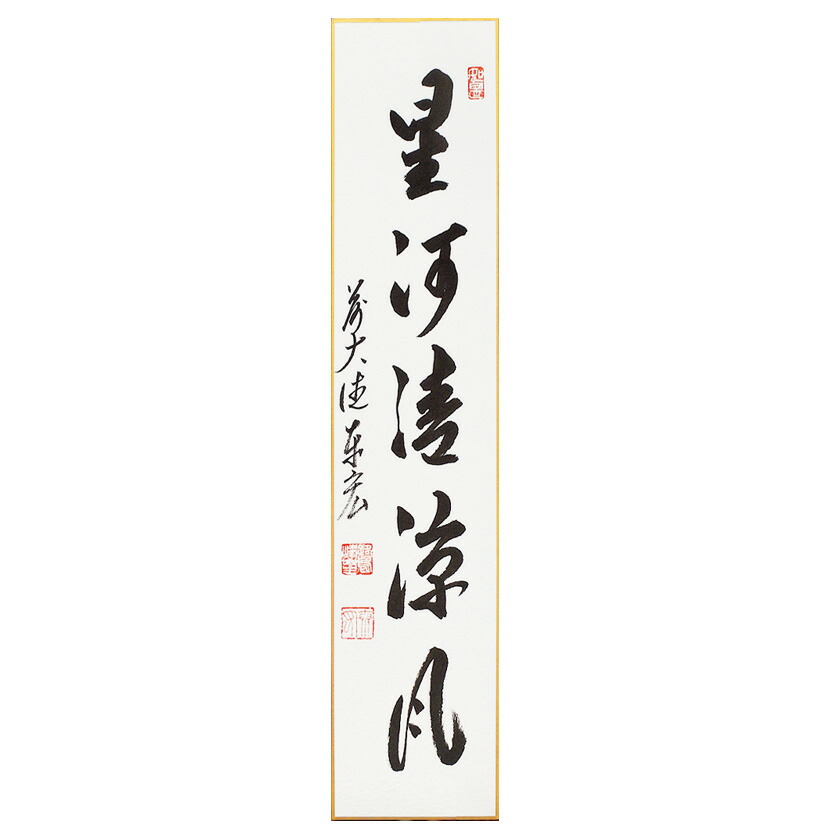 星河清涼風
前大徳東宏